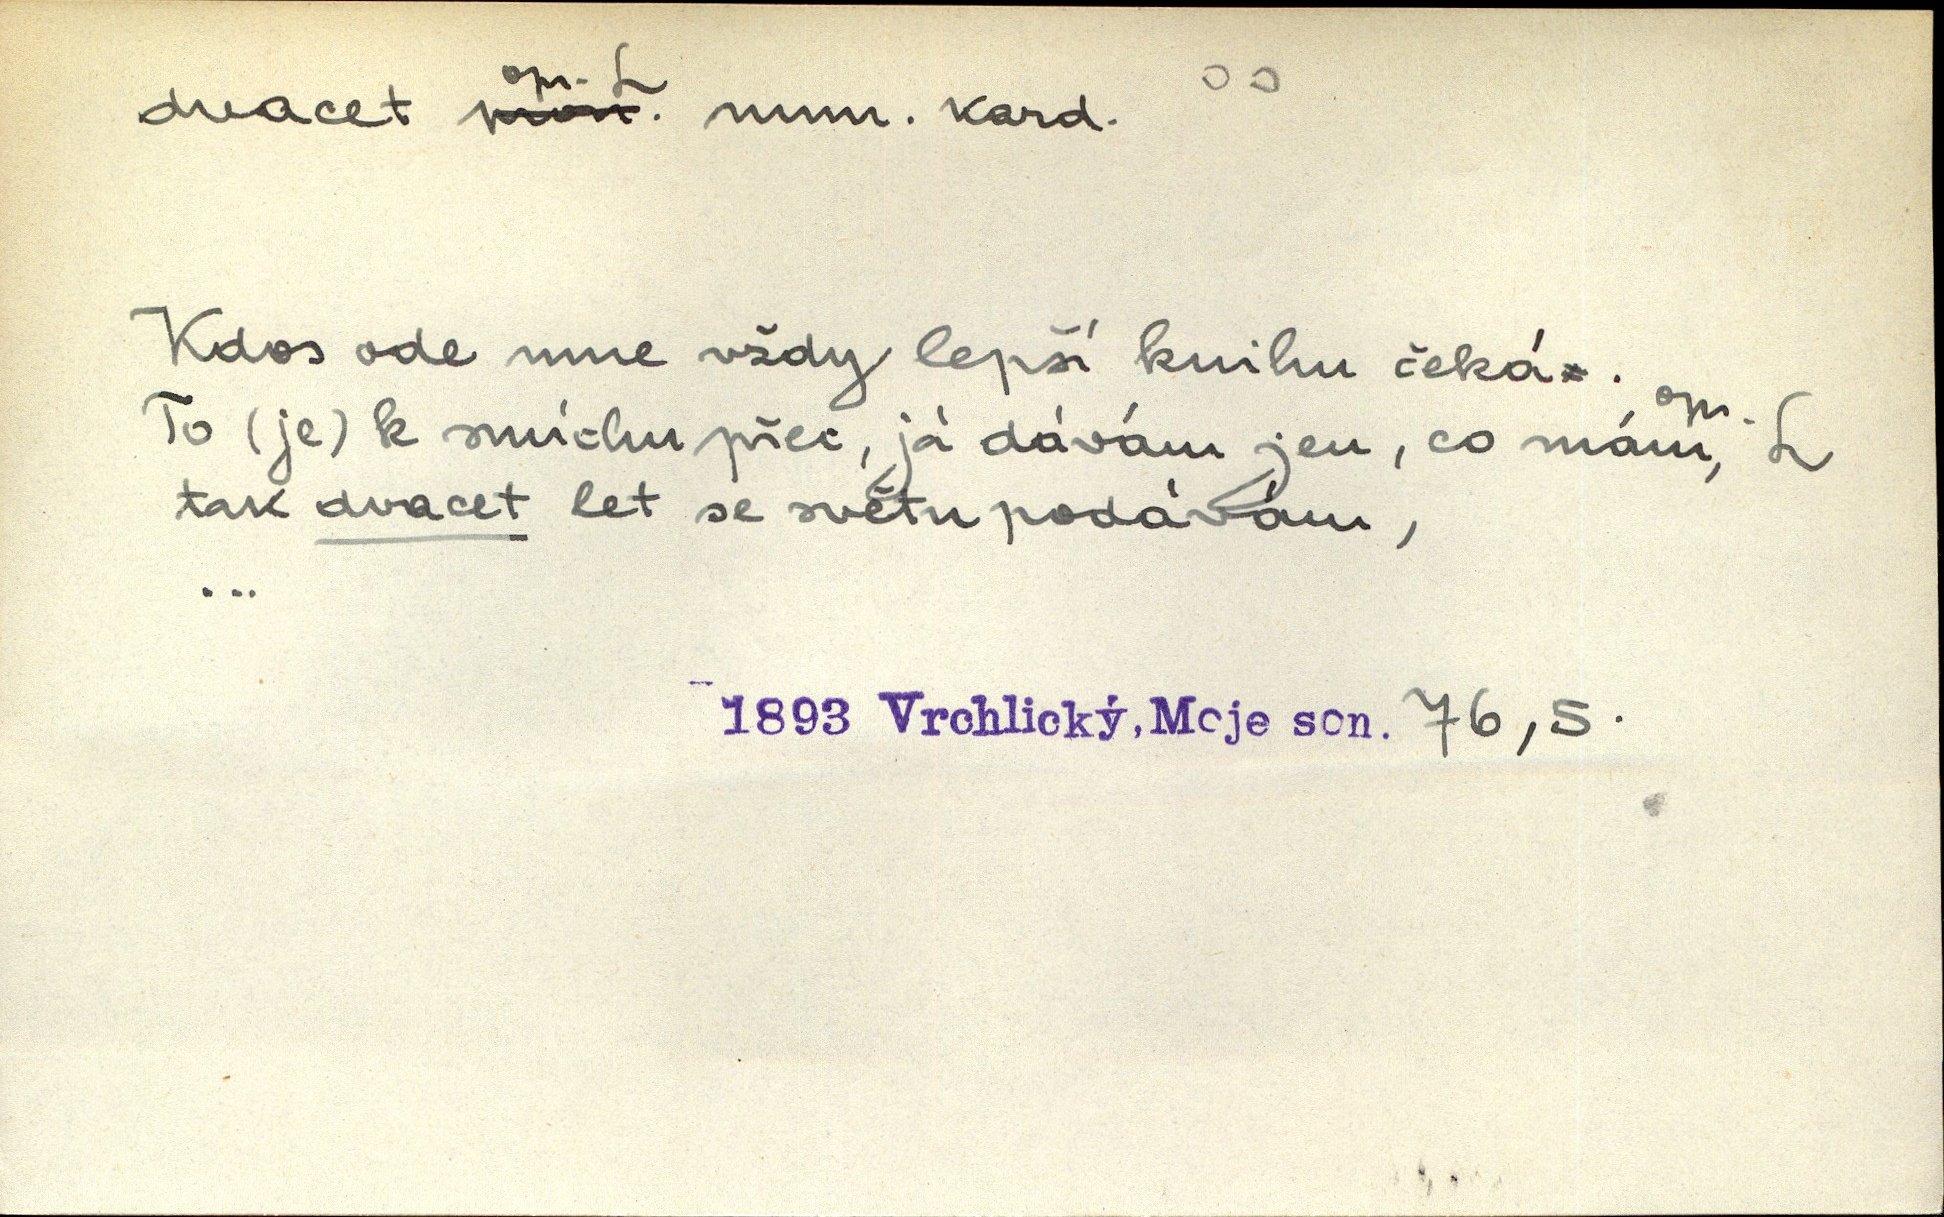 opr. L
dvacet num. kard.
Kdos ode mne vždy lepší knihu čeká.
To (je) k smíchu přec, já dávám jen, co mám, opr. L
tak dvacet let se světu podávám,
...
1893 Vrchlický, Moje son. 76, S.